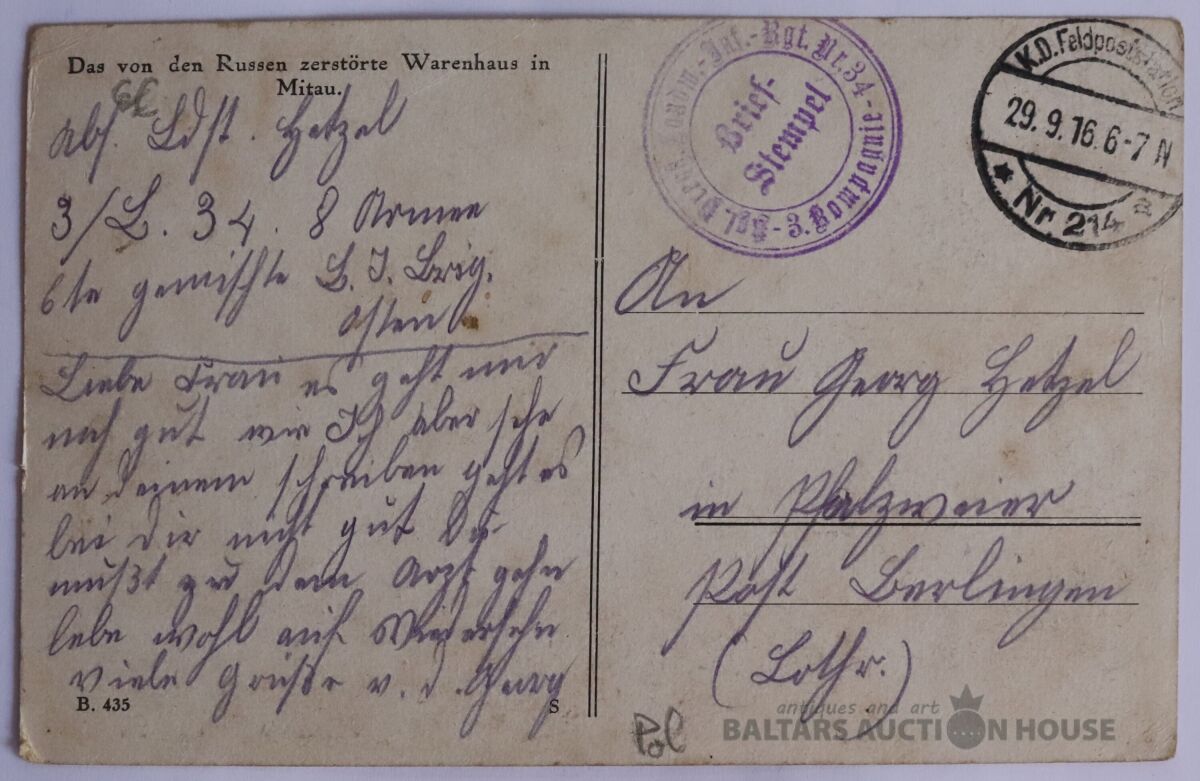 Das von den Russen zerstörte Warenhaus in
Mitau.
Abs. Ldst. Hetzel
3/L. 34. 8 Armee
6te gemischte L. I. Brig.
Osten
Liebe Frau es geht mir
noch gut wie Ich aber sehe
an deinem schreiben geht es
bei dir nicht gut Du
mußt zu dem Arzt gehn
lebe wohl auf Wiedersehn
viele Grüße v. d. Georg
B. 435
S
Kgl. Preuß. Landw.-Inf.-Rgt. Nr. 34 - 3. Kompagnie -
Brief-
Stempel
K.D. Feldpoststation
29. 9. 16. 6-7 N
Nr. 214 a
An
Frau Georg Hetzel
in Pfalzweier
Post Berlingen
(Lothr.)
Pol
antiques and art
BALTARS AUCTION HOUSE